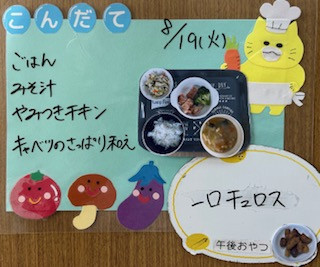 こんだて
8/19(火)
ごはん
みそ汁
やみつきチキン
キャベツのさっぱり和え
一口チュロス
午後おやつ